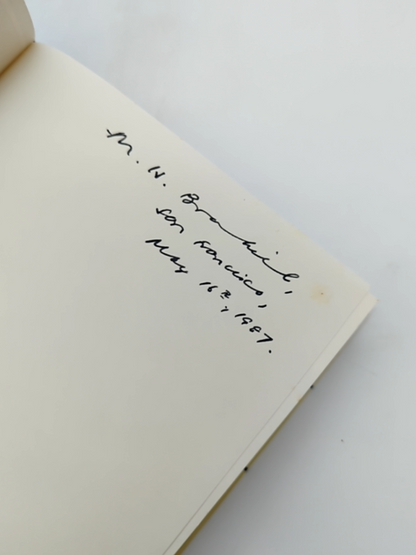 M. H.
San Francisco,
May 16th, 1987.